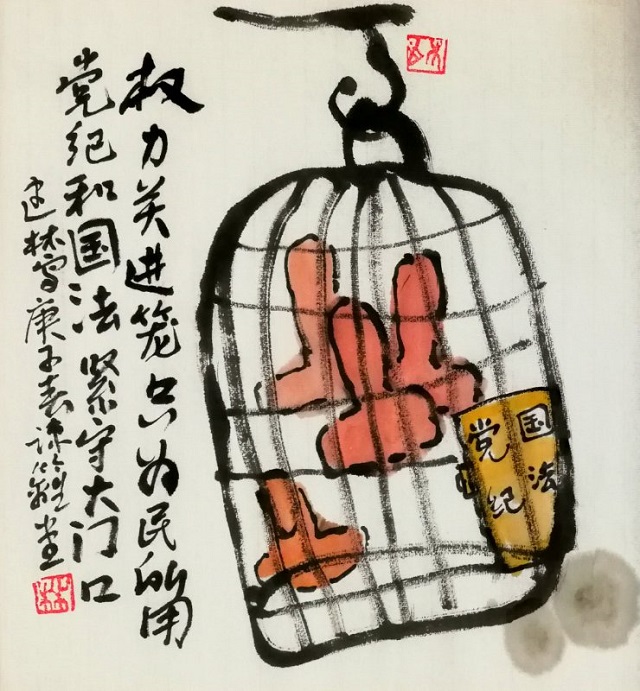 权力关进笼只为民所用
党纪和国法紧守大门口
建林写庚子春
国法
党纪